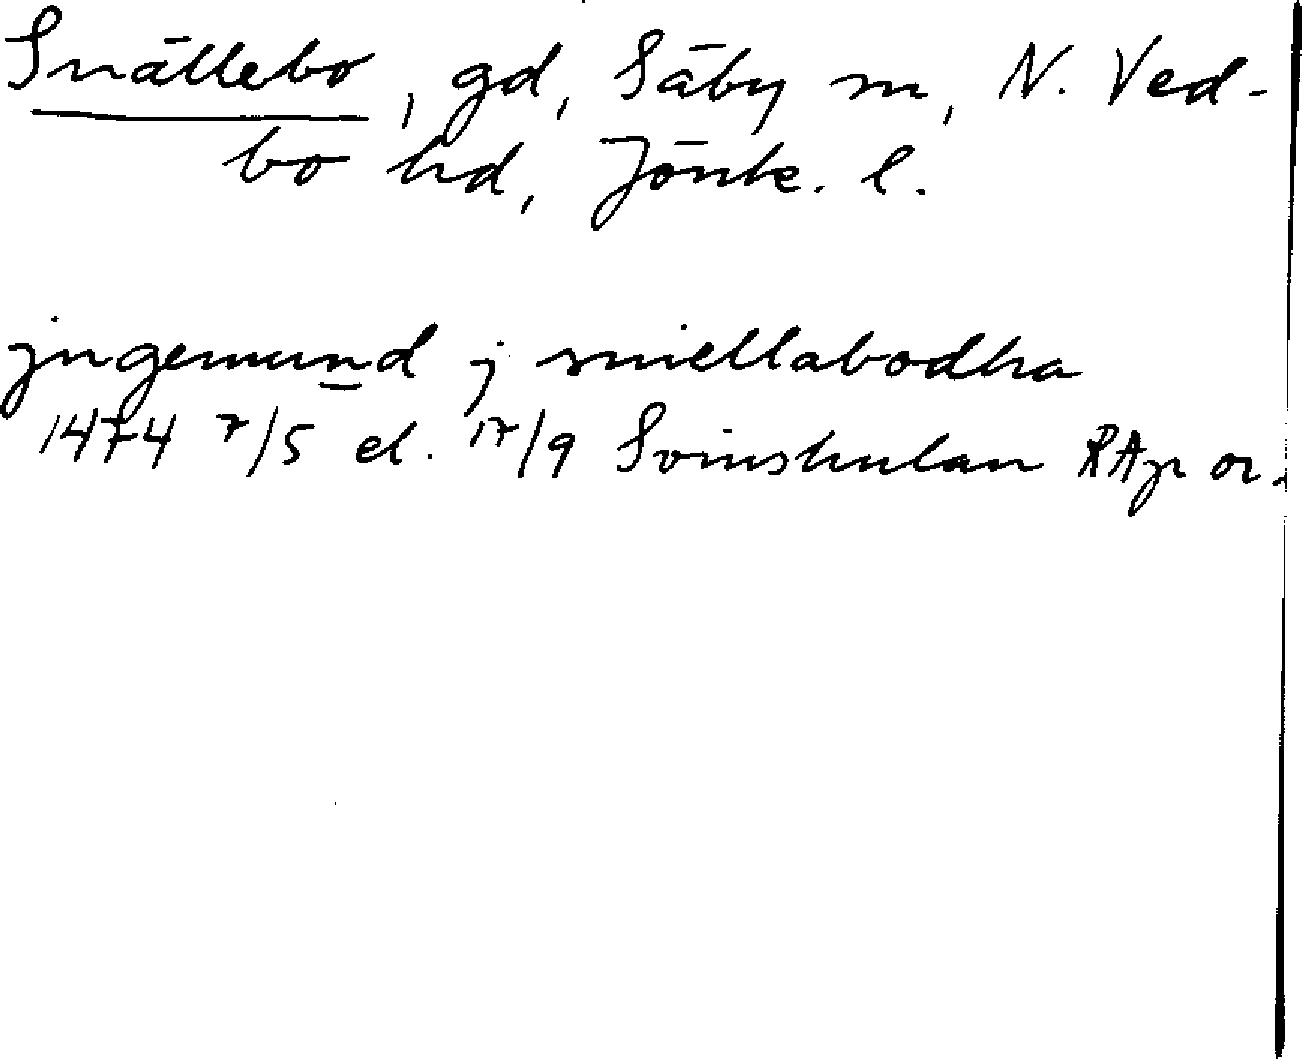 Snällebo, gd, Säby sn, N. Ved-
bo hd, Jönk. l.
jngemund j sniellabodha
1474 7/5 el. 17/9 Svinskulan RAp or.